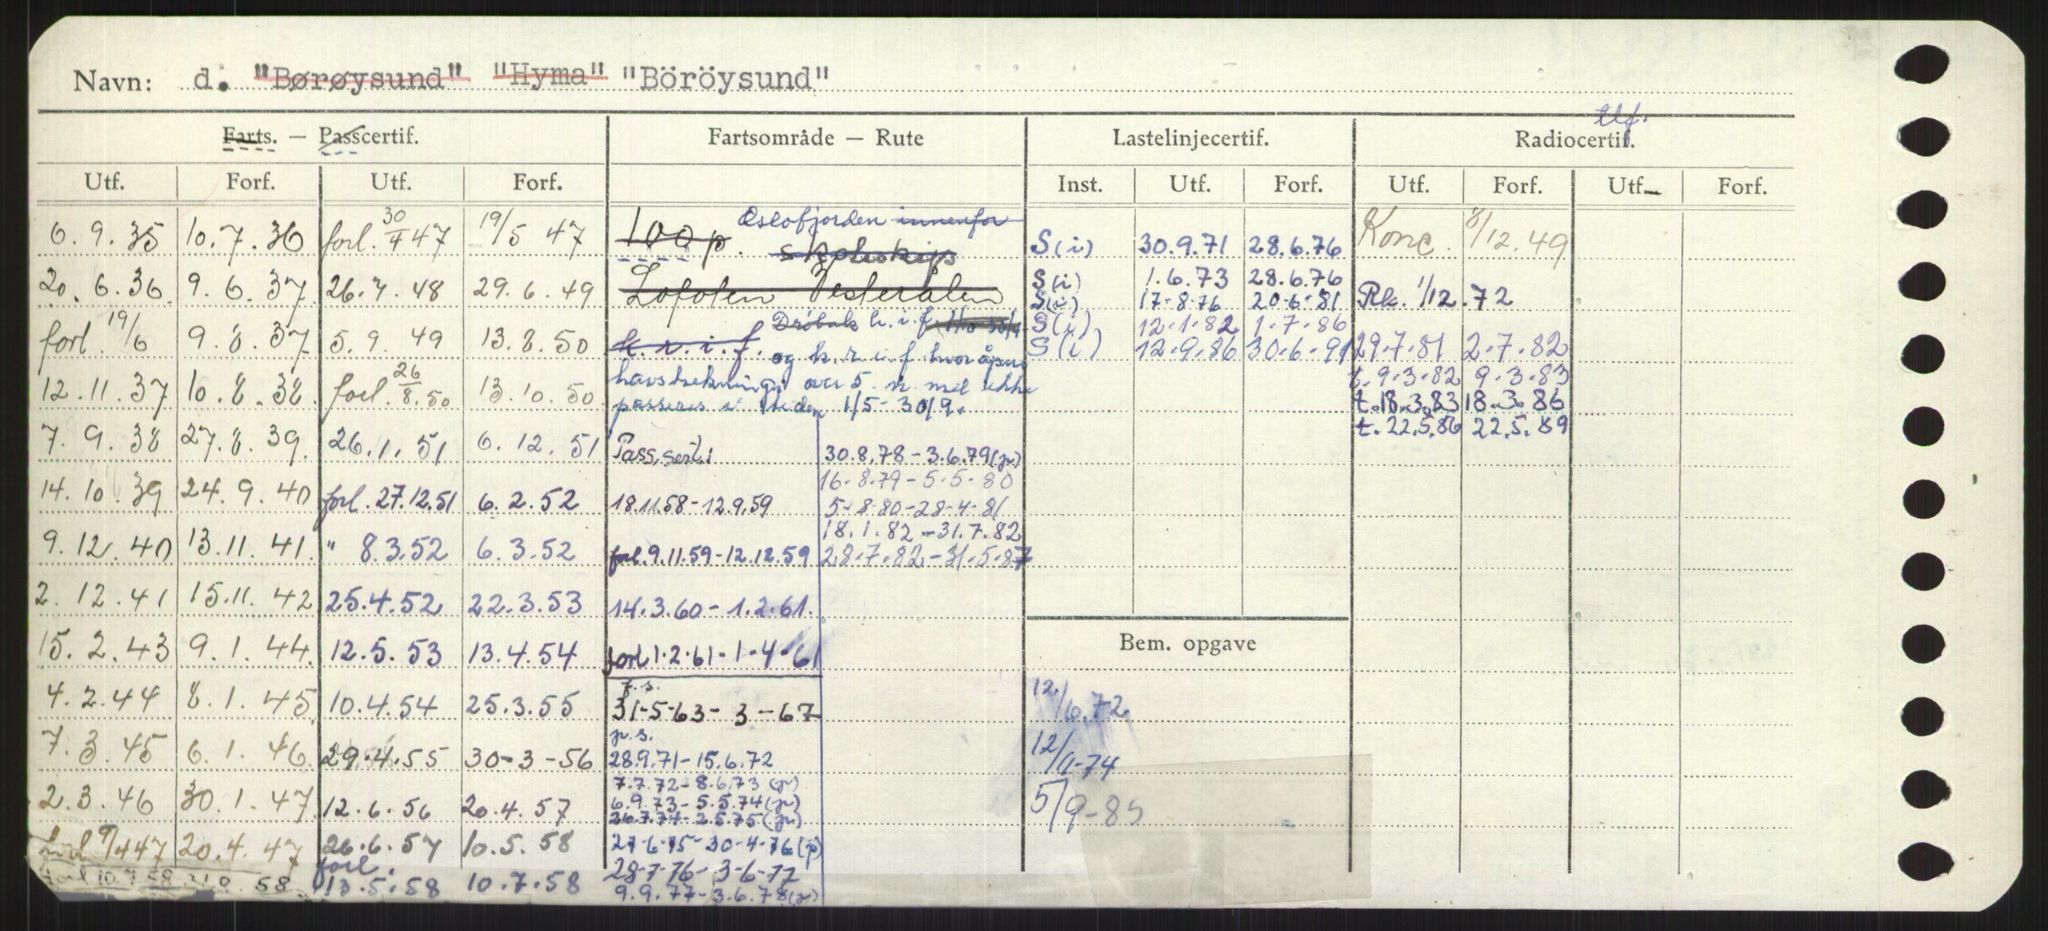 Navn: d. "Børøysund" "Hyma" "Böröysund"
Farts. — Passcertif.
Fartsområde — Rute
Lastelinjecertif.
tlf.
Radiocertif.
Utf. Forf. Utf. Forf. Inst. Utf. Forf. Utf. Forf. Utf. Forf.
6.9.35 10.7.36 forl. 30/4 47 19/5 47
20.6.36 9.6.37 26.7.48 29.6.49
forl. 19/6 9.8.37 5.9.49 13.8.50
12.11.37 10.8.38 forl. 26/8.50 13.10.50
7.9.38 27.8.39. 26.1.51 6.12.51
14.10.39 24.9.40 forl. 27.12.51 6.2.52
9.12.40 13.11.41. " 8.3.52 6.3.52
2.12.41 15.11.42 25.4.52 22.3.53
15.2.43 9.1.44. 12.5.53 13.4.54
4.2.44 8.1.45 10.4.54 25.3.55
7.3.45 6.1.46 29.4.55 30-3-56
2.3.46 30.1.47 12.6.56 20.4.57
20.4.47 26.6.57 10.5.58
forl.
58 13.5.58 10.7.58
100 p. Oslofjorden innenfor
Lofoten Vesterålen
Drøbak k.i.f.
k.r.i.f. og k.r.i.f hvor åpen
havstrekning over 5 n. mil ikke
passeres i tiden 1/5 - 30/9.
Pass.sert.:
18.11.58 - 12.9.59
forl. 9.11.59 - 12.12.59
14.3.60 - 1.2.61.
forl 1.2.61 - 1.4.61
31-5-63 - 3-67
28.9.71 - 15.6.72
7.7.72 - 8.6.73
6.9.73 - 5.5.74
26.7.74 - 2.5.75
27-6-75 - 30-4-76 (p)
28-7-76 - 3-6-77
9.9.77 - 3.6.78
30.8.78 - 3.6.79
16.8.79 - 5.5.80
5-8-80 - 28-4-81
18.1.82 - 31.7.82
28.7.82 - 31.5.87
S(i) 30.9.71 28.6.76
S(i) 1.6.73 28.6.76
S(i) 17.8.76 20.6.81
S(i) 12.1.82 1.7.86
S(i) 12.9.86 30.6.91
Konc. 8/12.49
Rk. 1/12.72
29.7.81 2.7.82
t. 9.3.82 9.3.83
t. 18.3.83 18.3.86
t. 22.5.86 22.5.89
Bem. opgave
12/6.72
5/9-85